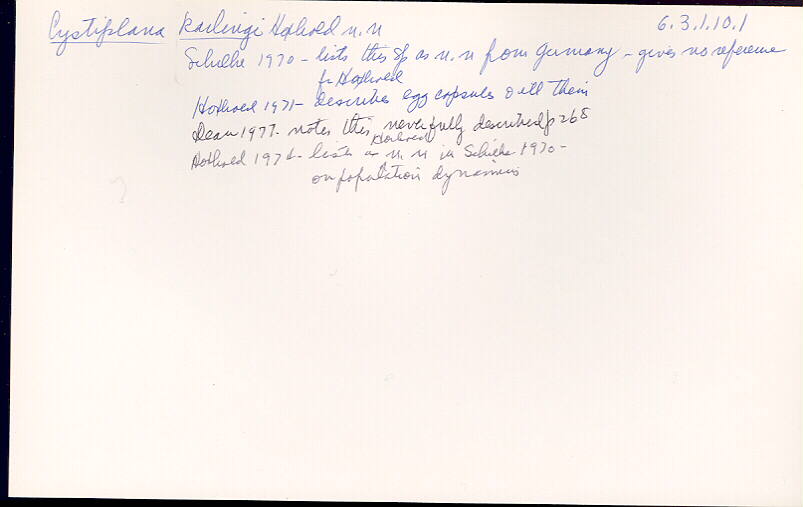 Cystiplana karlingi Hoxhold n.n 6.3.1.10.1
Schilke 1970 - lists this sp as n.n from Germany - gives no reference
fr Hoxhold
Hoxhold 1971 - describes egg capsules & ill them
Dean 1977 - notes this never fully described p 268
Hoxhold 1974 - lists as Hoxhold n.n in Schilke 1970 -
on population dynamics